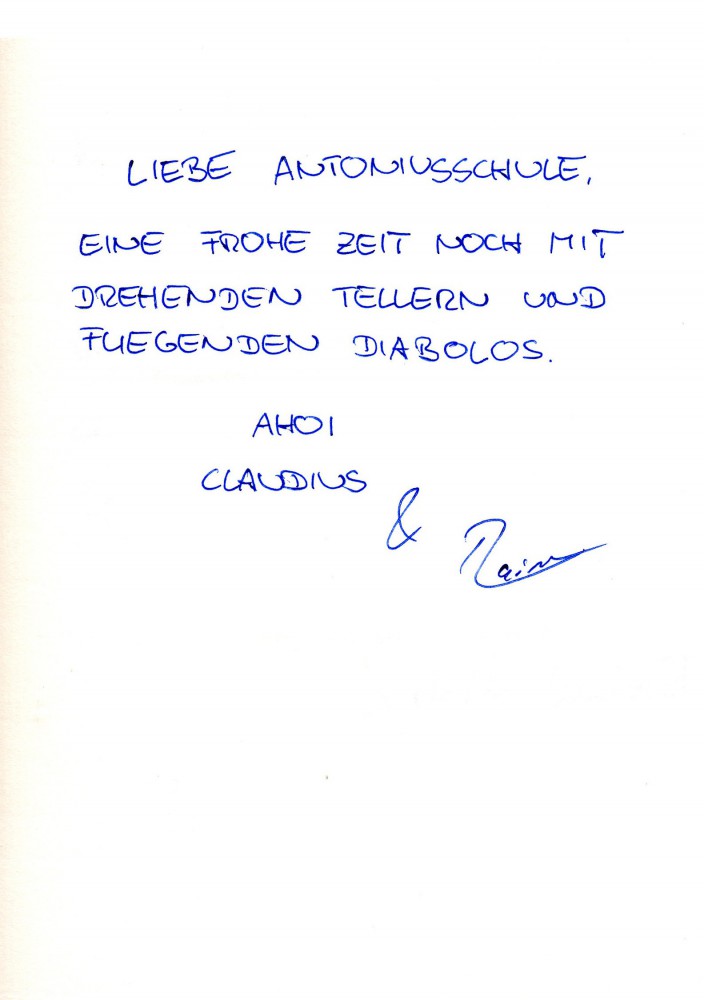 LIEBE ANTONIUSSCHULE,
EINE FROHE ZEIT NOCH MIT
DREHENDEN TELLERN UND
FLIEGENDEN DIABOLOS.
AHOI
CLAUDIUS
&